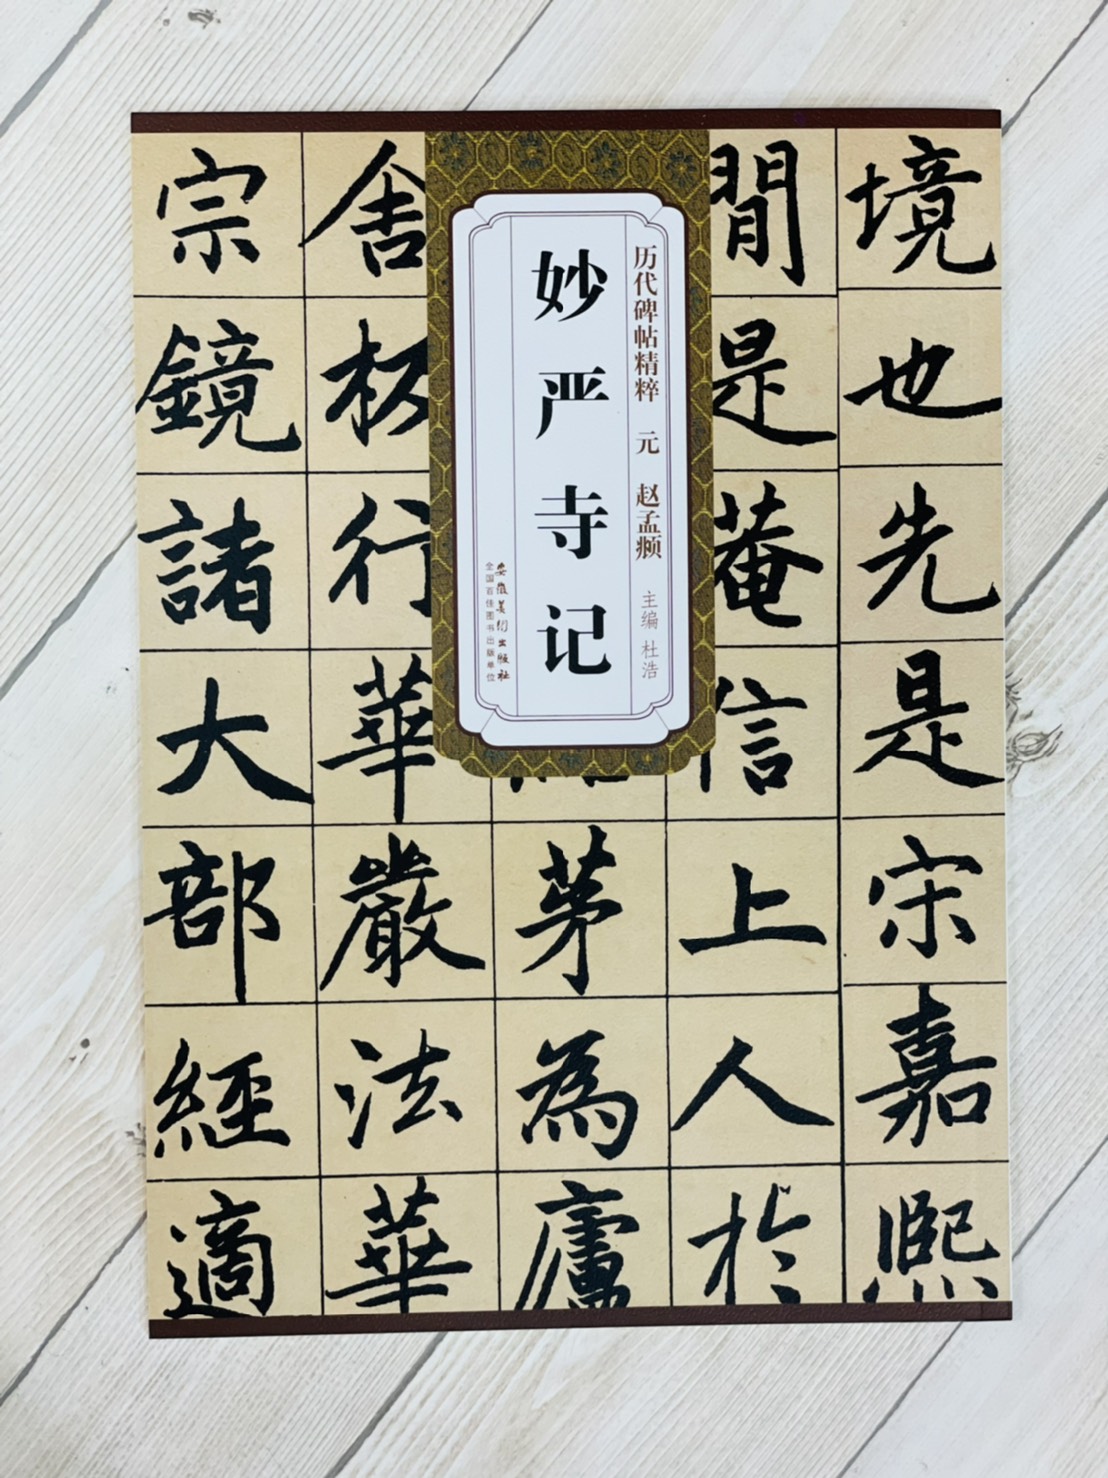 历代碑帖精粹 元 赵孟頫 主编 杜浩
妙严寺记
安徽美术出版社
全国百佳图书出版单位
境也先是宋嘉熙
間是菴信上人於
茅為廬
舍板行華嚴法華
宗鏡諸大部經適